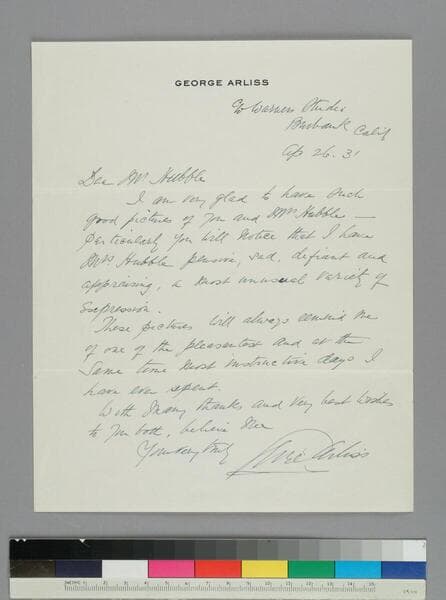 GEORGE ARLISS
c/o Warners Studio
Burbank Calif
Ap 26. 31
Dear Mr Hubble
I am very glad to have such
good pictures of you and Mrs Hubble —
Particularly you will notice that I have
Mrs Hubble pensive, sad, defiant and
appraising, a most unusual variety of
expression.
These pictures will always remind me
of one of the pleasantest and at the
same time most instructive days I
have ever spent.
With many thanks and very best wishes
to you both, believe me
Yours very truly
George Arliss